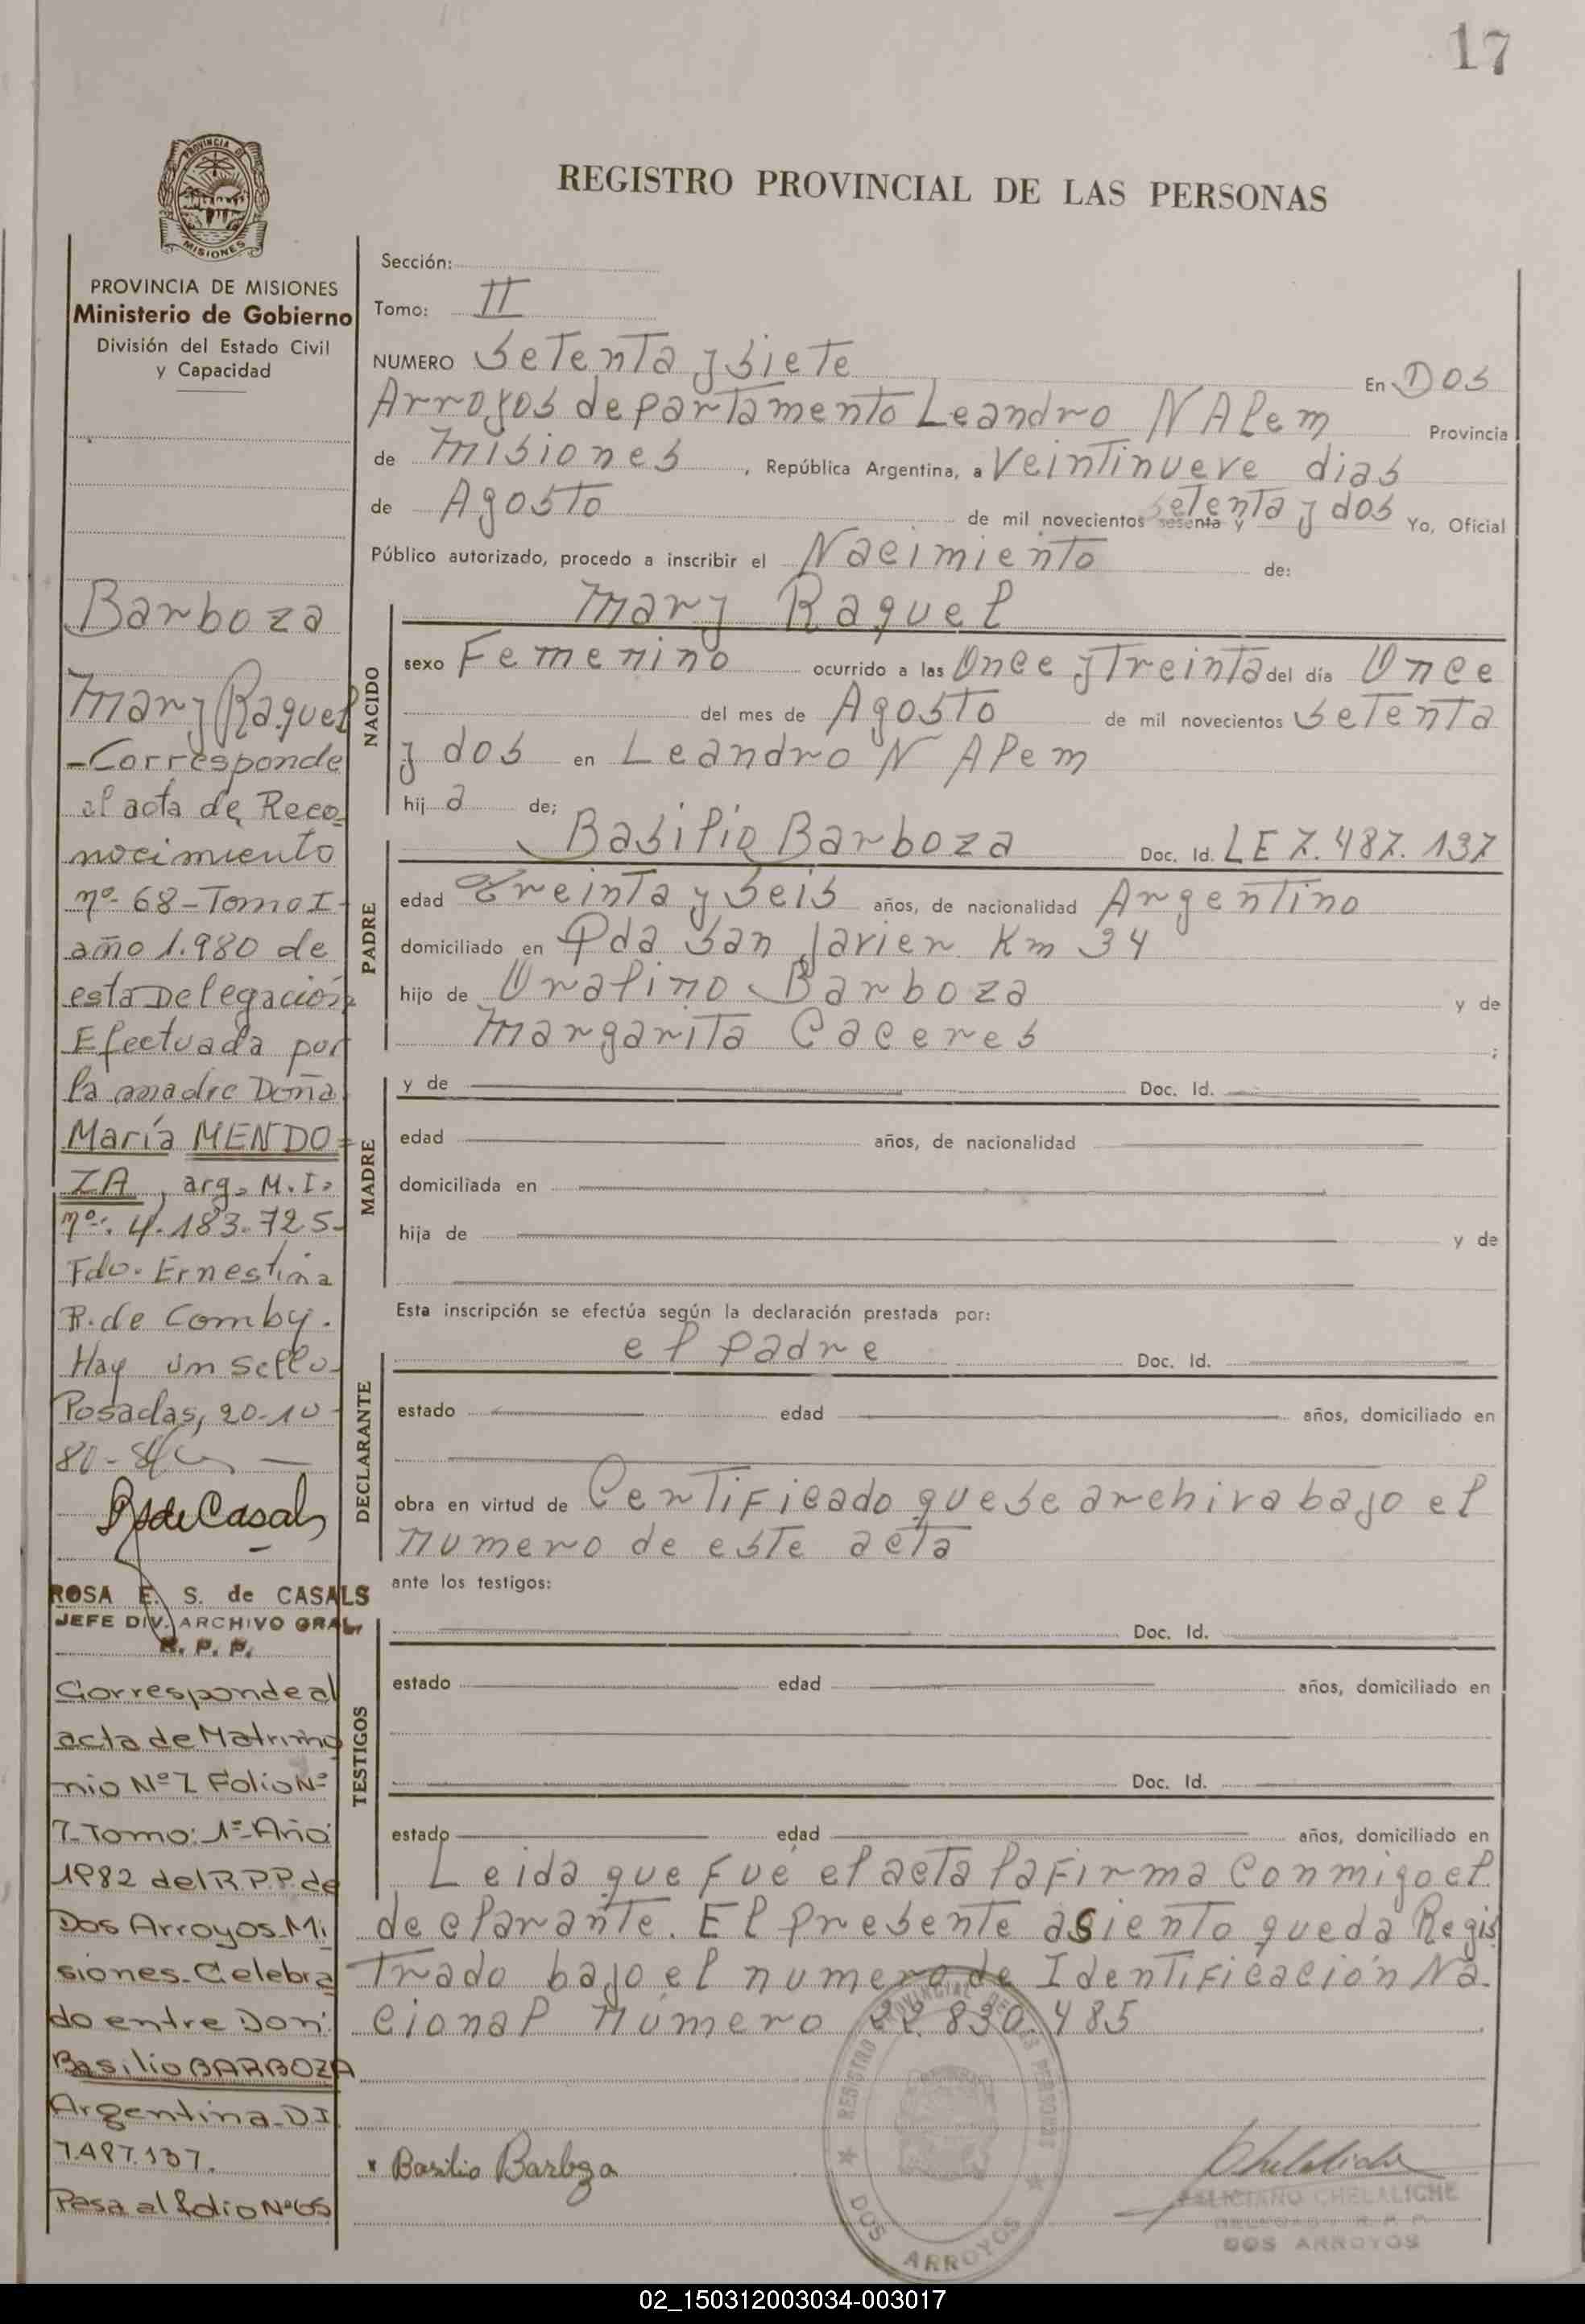 17
PROVINCIA DE
MISIONES
REGISTRO PROVINCIAL DE LAS PERSONAS
PROVINCIA DE MISIONES
Ministerio de Gobierno
División del Estado Civil
y Capacidad
Barboza
Mary Raquel
-Corresponde
al acta de Reco-
nocimiento
nº 68-Tomo I-
año 1.980 de
esta Delegación,
Efectuada por
la madre Doña
María MENDO=
ZA, arg. M.I.
nº: 4.183.725-
Fdo. Ernestina
R. de Comby.
Hay un sello-
Posadas, 20-10-
80-
RSdeCasals
ROSA E. S. de CASALS
JEFE DIV. ARCHIVO GRAL.
R. P. P.
Corresponde al
acta de Matrimo
nio Nº 7 Folio Nº
7-Tomo: 1º-Año
1982 del R.P.P. de
Dos Arroyos-Mi
siones-Celebra
do entre Don:
Basilio BARBOZA
Argentina-D.I.
7.487.137.
Pasa al folio Nº 65
Sección:
Tomo: II
NUMERO Setenta y Siete En Dos
Arroyos departamento Leandro N Alem Provincia
de Misiones, República Argentina, a Veintinueve dias
de Agosto de mil novecientos sesenta y setenta y dos Yo, Oficial
Público autorizado, procedo a inscribir el Nacimiento de:
NACIDO
Mary Raquel
sexo Femenino ocurrido a las Once y Treinta del día Once
del mes de Agosto de mil novecientos Setenta
y dos en Leandro N Alem
hij a de;
PADRE
Basilio Barboza Doc. Id. LE 7.487.137
edad treinta y Seis años, de nacionalidad Argentino
domiciliado en Pda San Javier Km 34
hijo de Uralino Barboza y de
Margarita Caceres ;
MADRE
y de Doc. Id.
edad años, de nacionalidad
domiciliada en
hija de y de
Esta inscripción se efectúa según la declaración prestada por:
DECLARANTE
el padre Doc. Id.
estado edad años, domiciliado en
obra en virtud de Certificado que se archiva bajo el
numero de este acta
ante los testigos:
TESTIGOS
Doc. Id.
estado edad años, domiciliado en
Doc. Id.
estado edad años, domiciliado en
Leida que fué el acta la firma Conmigo el
declarante. El presente asiento queda Regis
trado bajo el numero de Identificación Na-
cional número 22.830.485
REGISTRO PROVINCIAL DE LAS PERSONAS
DOS ARROYOS
x Basilio Barboza
Chelaliche
FELICIANO CHELALICHE
DELEGADO R. P. P.
DOS ARROYOS
02_150312003034-003017